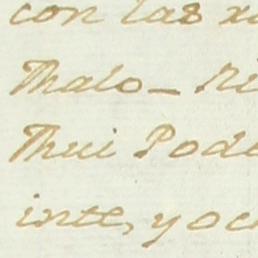 con las
Thalo_
Thui Pod
inte, y o